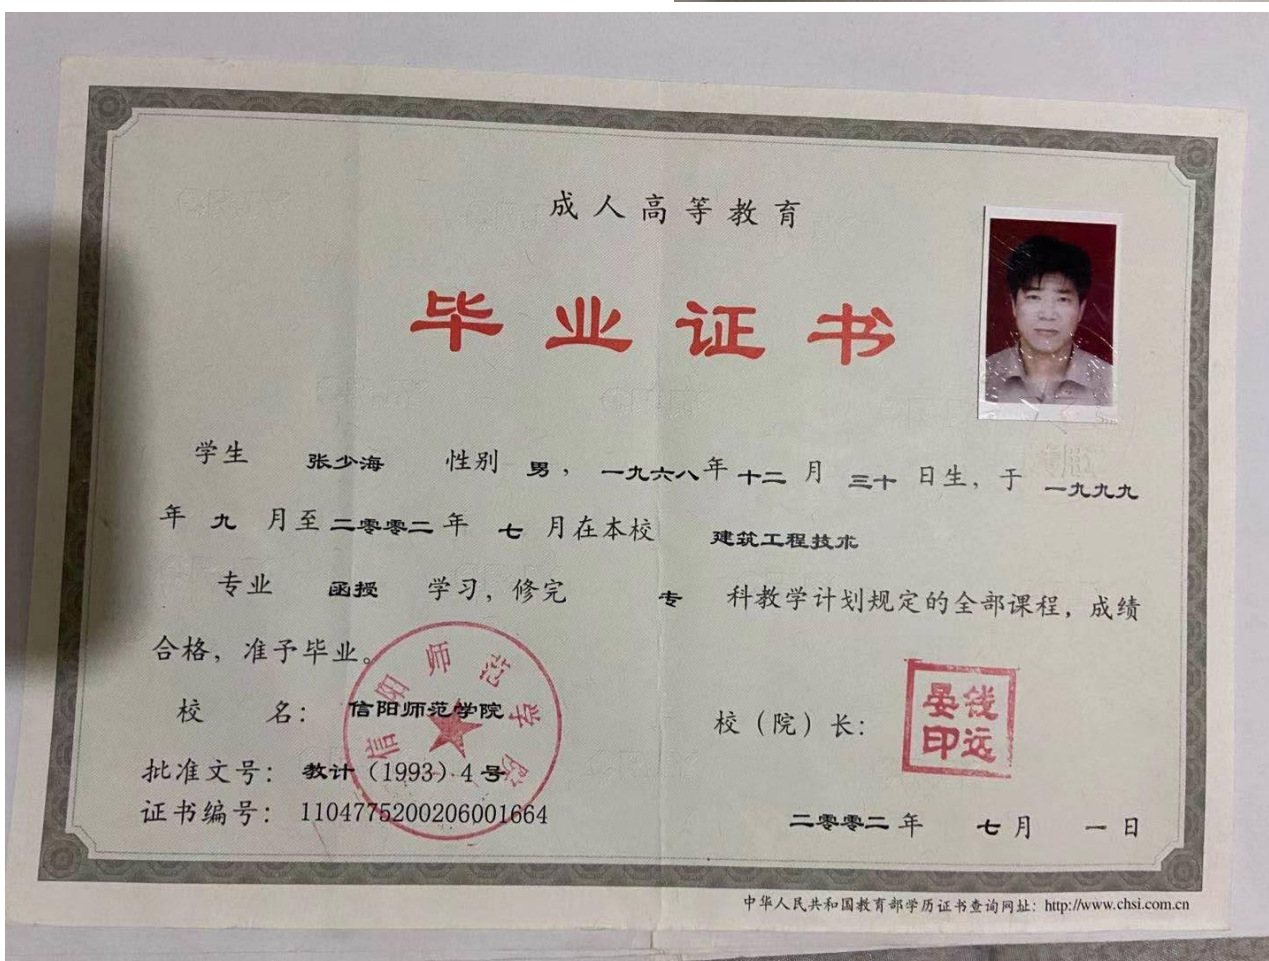 成人高等教育
毕业证书
学生 张少海 性别 男，一九六八年十二月三十日生，于一九九九
年九月至二零零二年七月在本校 建筑工程技术
专业 函授 学习，修完 专 科教学计划规定的全部课程，成绩
合格，准予毕业。
信阳师范学院
校 名：信阳师范学院
校（院）长：
钱远晏印
批准文号：教计（1993）4号
证书编号：110477520020600​1664
二零零二年 七月 一日
中华人民共和国教育部学历证书查询网址：http://www.chsi.com.cn